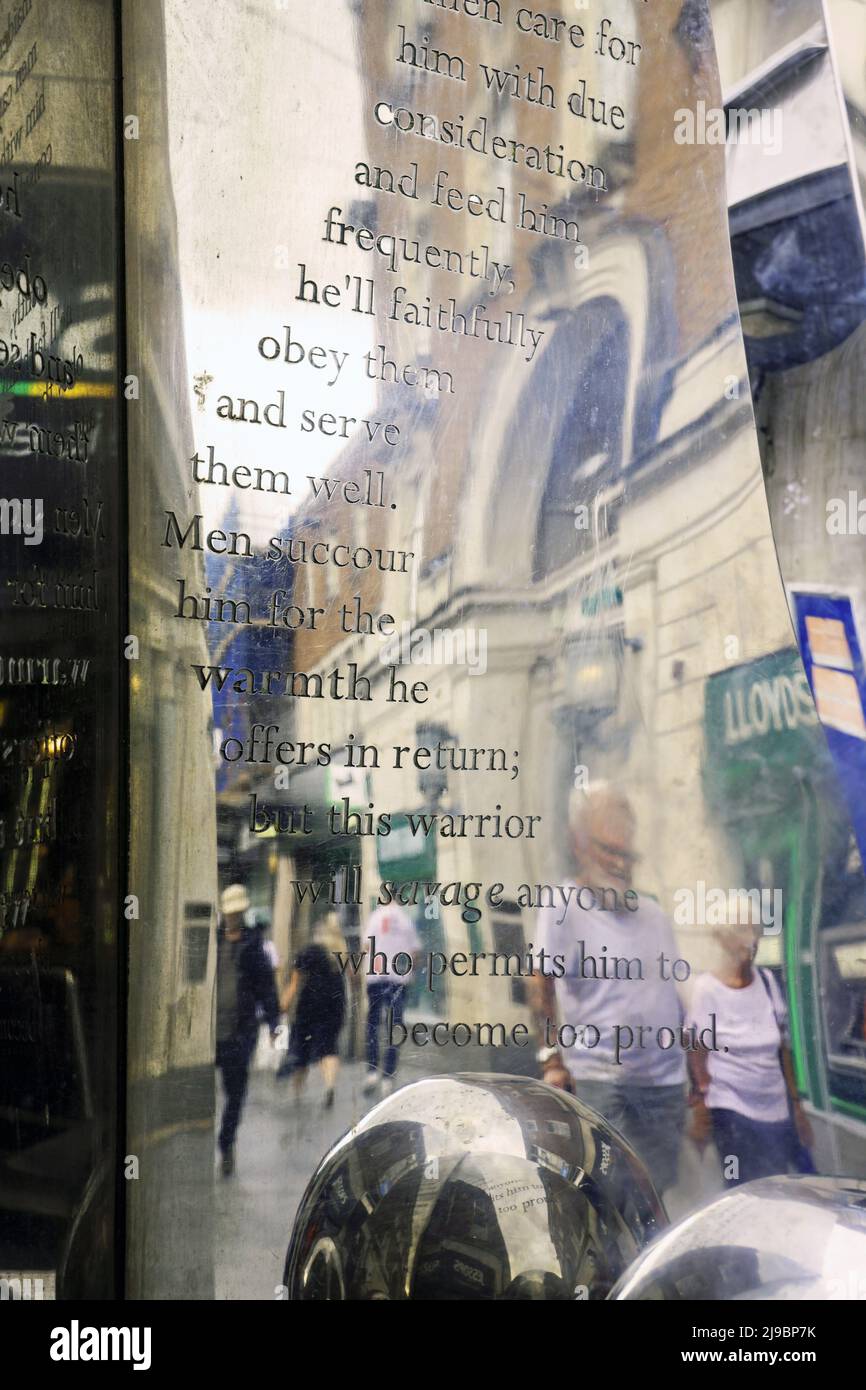 men care for
him with due
consideration
and feed him
frequently,
he'll faithfully
obey them
and serve
them well.
Men succour
him for the
warmth he
offers in return;
but this warrior
will savage anyone
who permits him to
become too proud.
LLOYDS
its him to
too proud
alamy
Image ID: 2J9BP7K
www.alamy.com